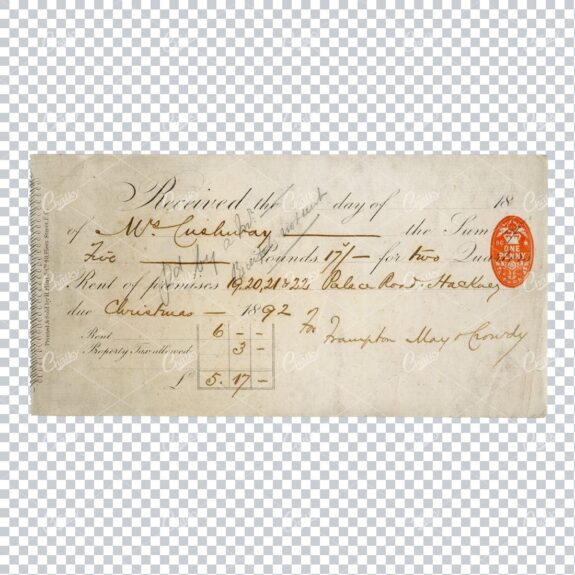 Received the day of 18
of Mrs Cushway the Sum
Five Pounds 17/- for two Qua
Rent of premises 19, 20, 21 & 22 Palace Road, Hackney
due Christmas — 1892
For Frampton May & Crowdy
Rent 6 - -
Property Tax allowed - 3 -
£ 5. 17 -
ONE
PENNY